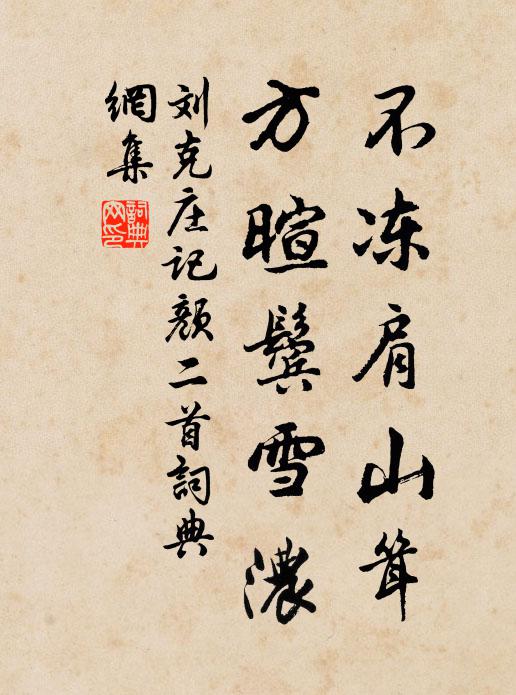 不冻肩山耸
方暄鬓雪浓
刘克庄记颜二首詞典
網集
詞典
网印